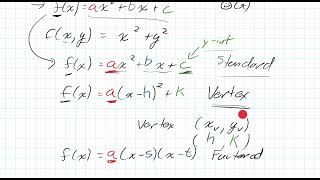 f(x) = ax² + bx + c
f(x,y) = x² + y²
y-int
f(x) = ax² + bx + c Standard
f(x) = a(x-h)² + k Vertex
Vertex (xᵥ, yᵥ)
(h, k)
f(x) = a(x-s)(x-t) Factored